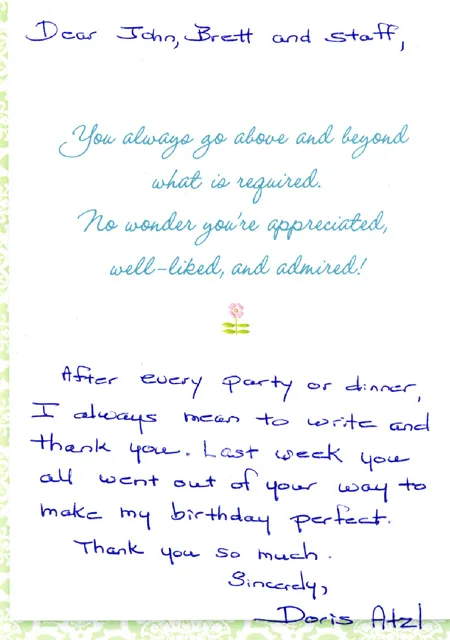 Dear John, Brett and staff,
You always go above and beyond
what is required.
No wonder you're appreciated,
well-liked, and admired!
After every party or dinner,
I always mean to write and
thank you. Last week you
all went out of your way to
make my birthday perfect.
Thank you so much.
Sincerely,
Doris Atzl